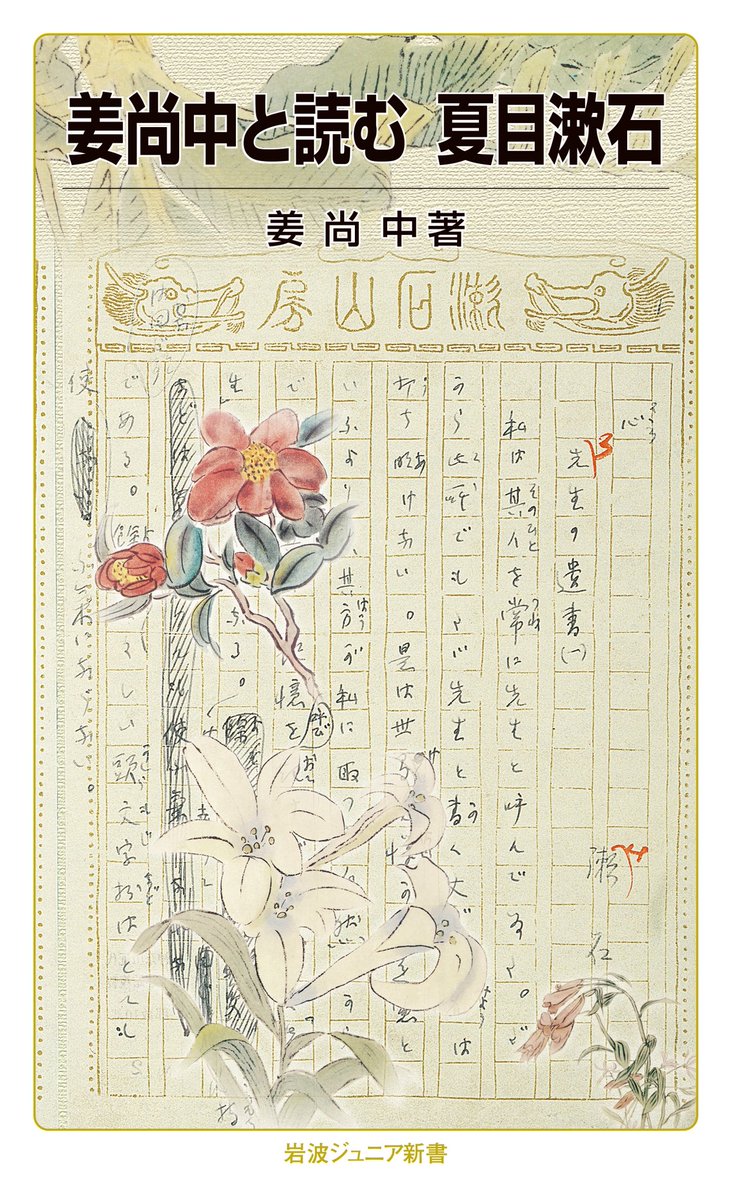 姜尚中と読む 夏目漱石
姜尚中著
漱石山房
心
先生の遺書(一)
漱石
私は其人を常に先生と呼んでゐた。だ
から此所でもたゞ先生と書く丈で は
打ち明けない。是は世 と
いふより 、其方が私に取つ 然 か
で 憶を呼び
生 る。
である。餘 しい頭文字抔はとても
使ふ氣にならない。
岩波ジュニア新書